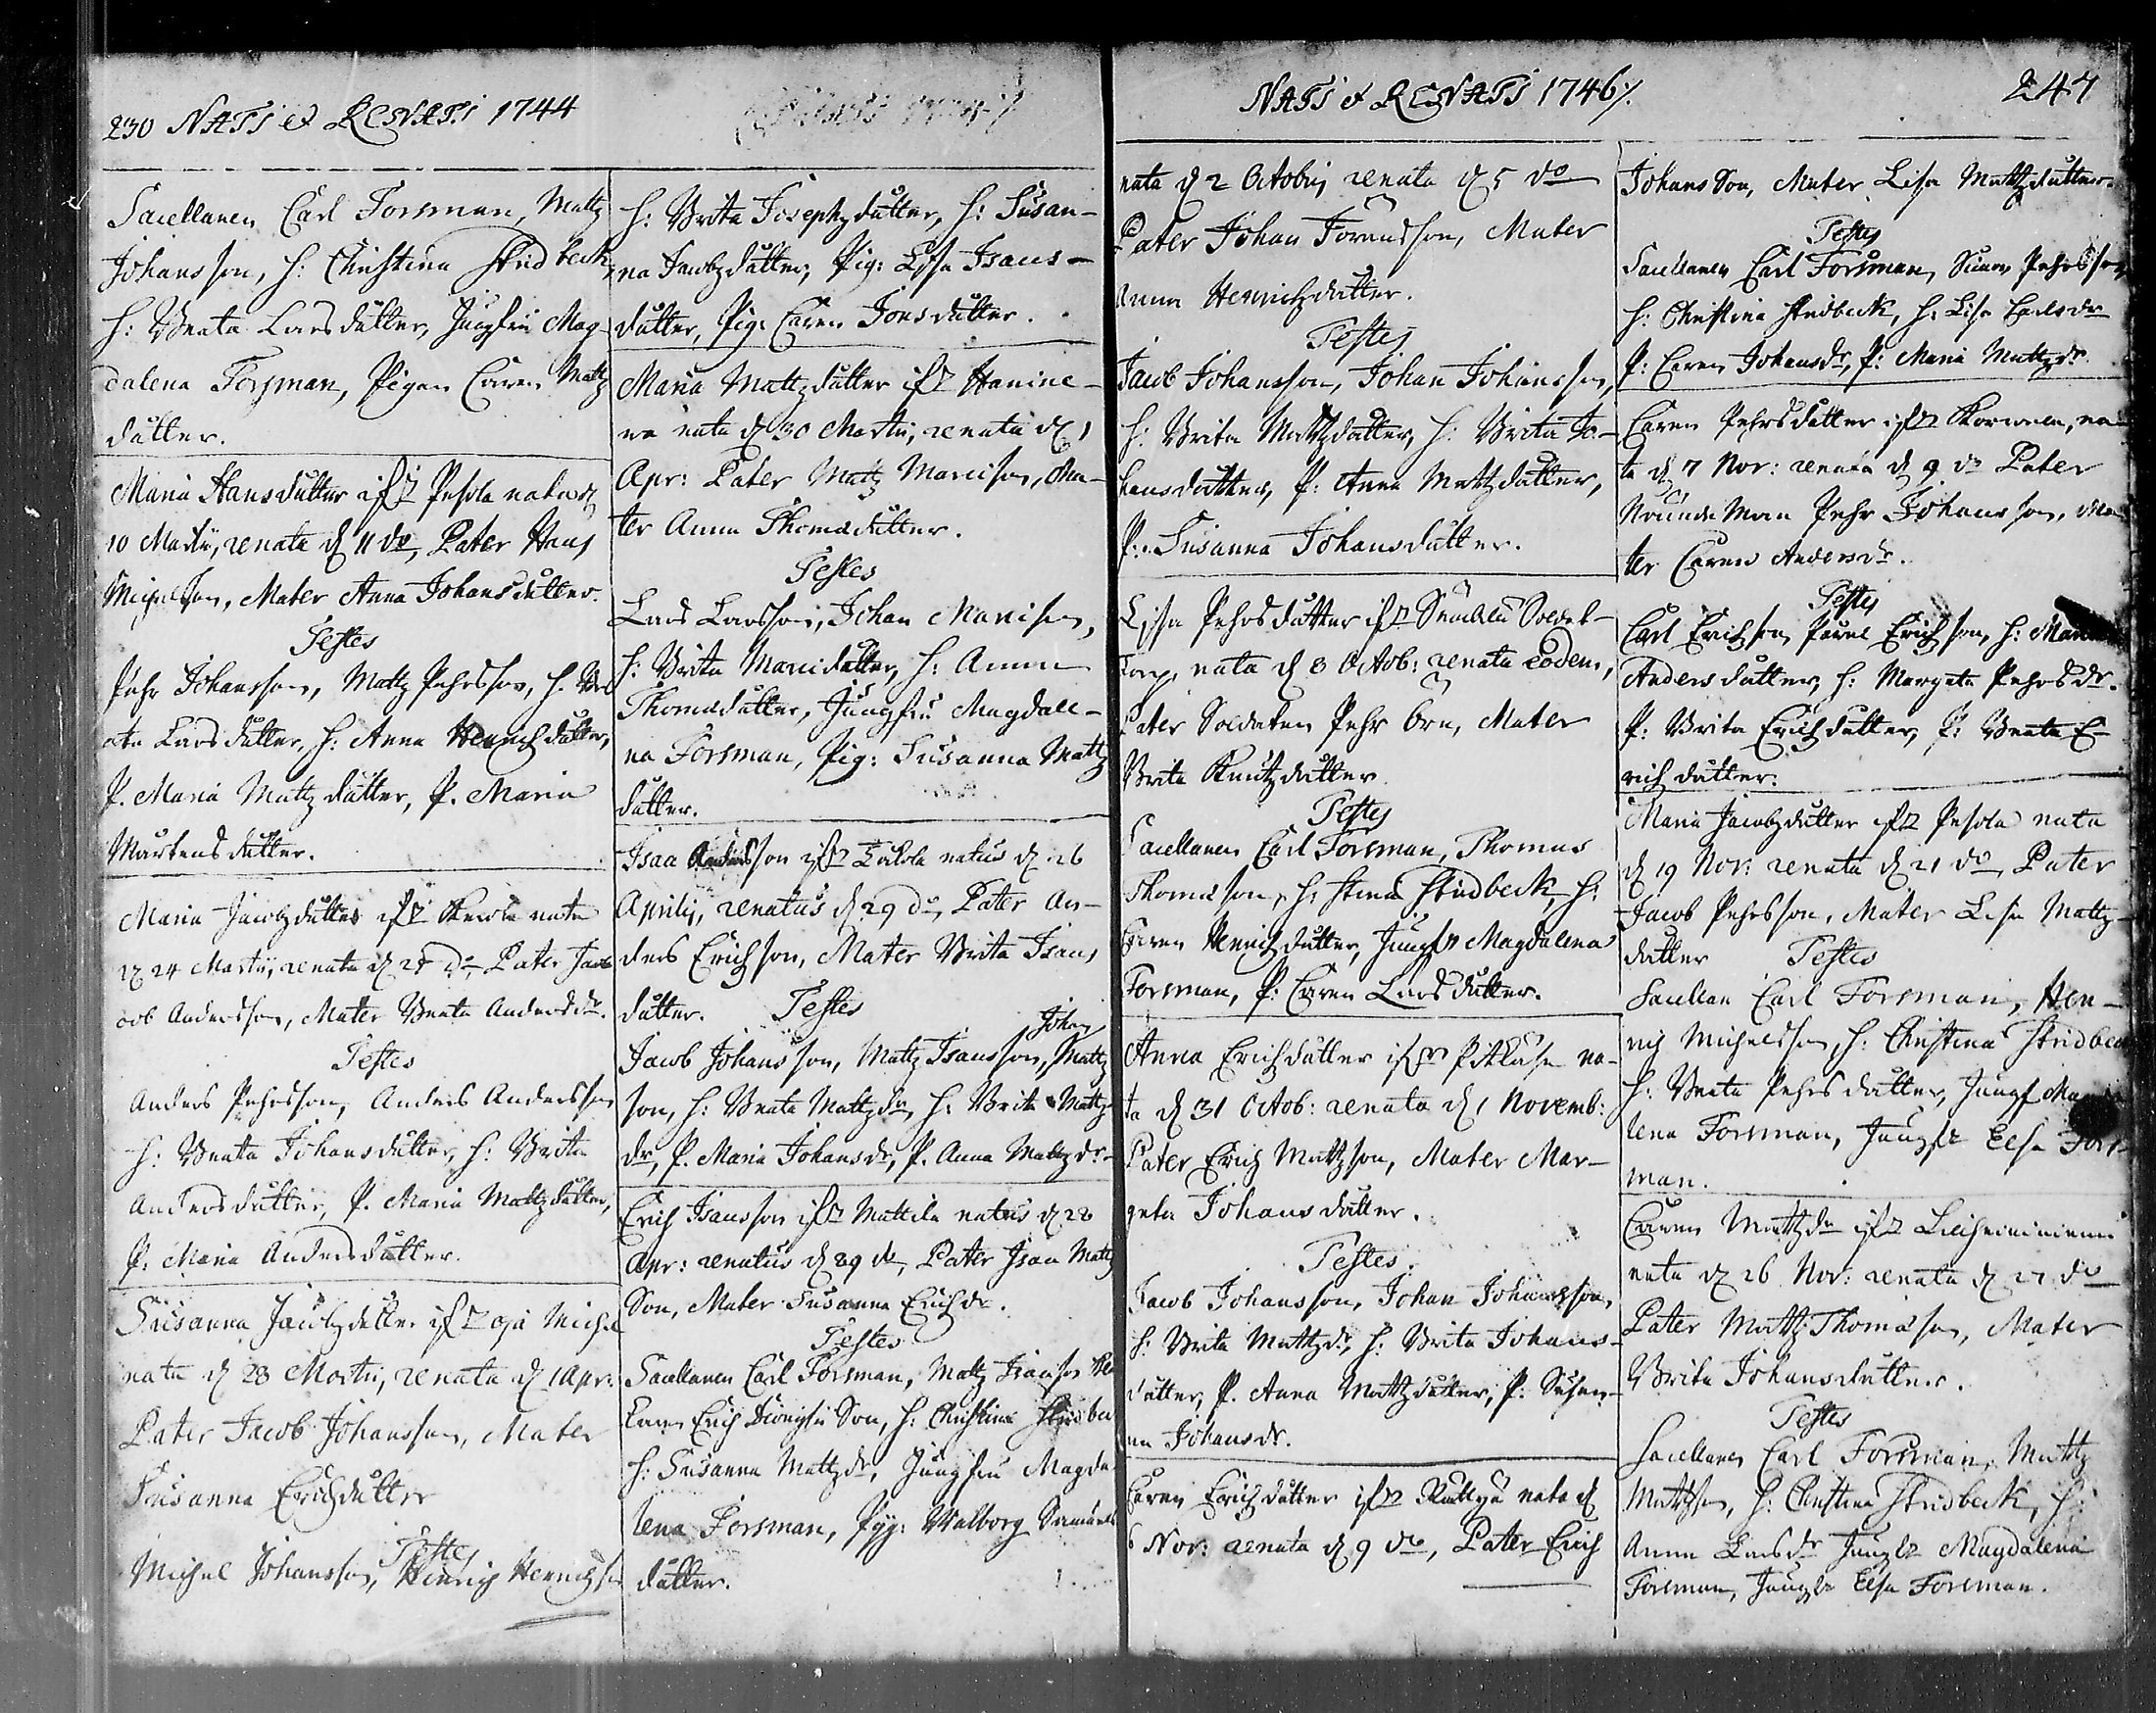 230 NATI et RENATI 1744
Sacellanen Carl Forsman, Mattz
Johansson, h: Christina Stridbeck
h: Beata Larsdutter, Jungfru Mag-
dalena Forsman, Pigan Caren Mattz
dutter.
Maria Hansdutter ifr Pesola nata d
10 Martii, renata d 11 do, Pater Hans
Michelson, Mater Anna Johansdutter.
Testes
Pehr Johansson, Mattz Pehrsson, h. Be
ata Larsdutter, h: Anna Henrichdutter,
P. Maria Mattzdutter, P. Maria
Mårtensdutter.
Maria Jacobzdutter ifr nata
d 24 Martii, renata d 25 do Pater Jac
cob Andersson, Mater Beata Andersdr.
Testes
Anders Pehrsson, Anders Andersson
h: Beata Johansdutter, h: Brita
Andersdutter, P. Maria Mattzdutter,
P. Maria Andersdutter.
Susanna Jacobzdutter ifr Michel
nata d 28 Martii, renata d 1 Apr:
Pater Jacob Johansson, Mater
Susanna Erichdutter
Testes
Michel Johansson, Henrich Henrichson
h: Brita Josephzdutter, h: Susan-
na Jacobzdutter, Pig: Lisa Isacs-
dutter, Pig: Caren Jonsdutter.
Maria Mattzdutter ifr Hanine-
na nata d 30 Martii, renata d 1
Apr: Pater Mattz Marcison, Ma-
ter Anna Thomædutter.
Testes
Lars Larsson, Johan Marcison,
h: Brita Marcidutter, h: Anna
Thomædutter, Jungfru Magdale-
na Forsman, Pig: Susanna Mattz
dutter.
Isac Andersson ifr natus d 26
Aprilis, renatus d 29 do, Pater An-
ders Erichson, Mater Brita Isacs
dutter. Testes
Johan
Jacob Johansson, Mattz Isacsson, Mattz
son, h: Beata Mattzdr, h: Brita Mattz
dr, P. Maria Johansdr, P. Anna Mattzdr.
Erich Isacsson ifr Mattila natus d 28
Apr: renatus d 29 do, Pater Isac Mattz
Son, Mater Susanna Erichdr.
Testes
Sacellanen Carl Forsman, Mattz Isacson
Erich Son, h: Christina Stridbec
h: Susanna Mattzdr, Jungfru Magda
lena Forsman, Pig: Walborg Samuels
dutter.
NATI et RENATI 1746
247
nata d 2 Octobris renata d 5 do
Pater Johan Jöransson, Mater
Anna Henrichdutter.
Testes
Jacob Johansson, Johan Johansson,
h: Brita Mattzdutter, h: Brita Jo-
hansdutter, P: Anna Mattzdutter,
P: Susanna Johansdutter.
Lisa Pehrsdutter ifr Soldat-
torp, nata d 8 Octob: renata eodem,
Pater Soldaten Pehr Örn, Mater
Brita Knutzdutter
Testes
Sacellanen Carl Forsman, Thomas
Thomæson, h: Stina Stridbeck, h:
Caren Henrichdutter, Jungfr Magdalena
Forsman, P: Caren Larsdutter.
Anna Erichdutter ifr Pitkäla na-
ta d 31 Octob: renata d 1 Novemb:
Pater Erich Mattzson, Mater Mar-
geta Johansdutter.
Testes.
Jacob Johansson, Johan Johansson,
h: Brita Mattzdr, h: Brita Johans-
dutter, P. Anna Mattzdutter, P: Susan-
na Johansdr.
Caren Erichdutter ifr nata d
6 Nov: renata d 9 do, Pater Erich
Johansson, Mater Lisa Mattzdutter.
Testes
Sacellanen Carl Forsman, Pehrsson,
h: Christina Stridbeck, h: Lisa Carlsdr
P: Caren Johansdr, P: Maria Mattzdr.
Caren Pehrsdutter ifr na
ta d 7 Nov: renata d 9 do Pater
Nämndeman Pehr Johansson, Ma
ter Caren Andersdr.
Testes
Carl Erichson, Påvel Erichson, h: Maria
Andersdutter, h: Margeta Pehrsdr.
P: Brita Erichdutter, P: Beata E-
richdutter.
Maria Jacobzdutter ifr Pesola nata
d 19 Nov: renata d 21 do, Pater
Jacob Pehrsson, Mater Lisa Mattz-
dutter Testes
Sacellan Carl Forsman, Hen-
rich Michelsson, h: Christina Stridbeck
h: Beata Pehrsdutter, Jungf Magda
lena Forsman, Jungfr Elsa Fors-
man.
Caren Mattzdr ifr
nata d 26 Nov: renata d 27 do
Pater Mattz Thomæson, Mater
Brita Johansdutter.
Testes
Sacellanen Carl Forsman, Mattz
Mattzson, h: Christina Stridbeck, h:
Anna Larsdr Jungfr Magdalena
Forsman, Jungfr Elsa Forsman.